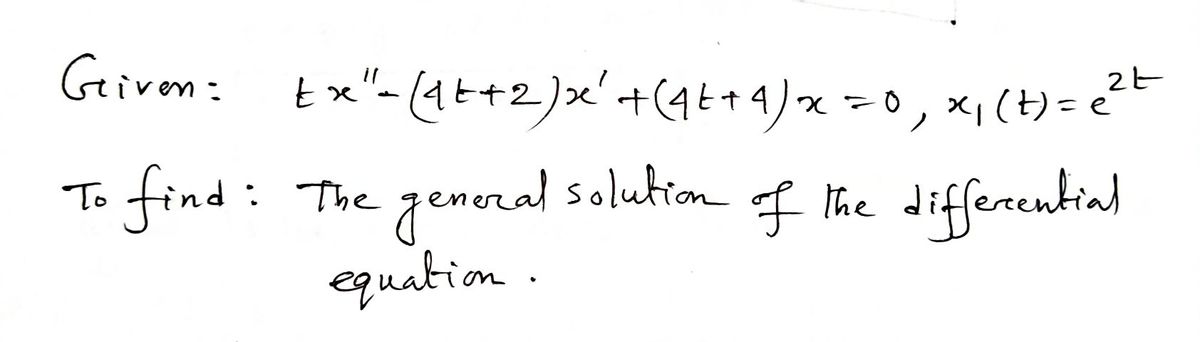 Given: tx"-(4t+2)x'+(4t+4)x=0, x₁(t)=e²ᵗ
To find: The general solution of the differential
equation.